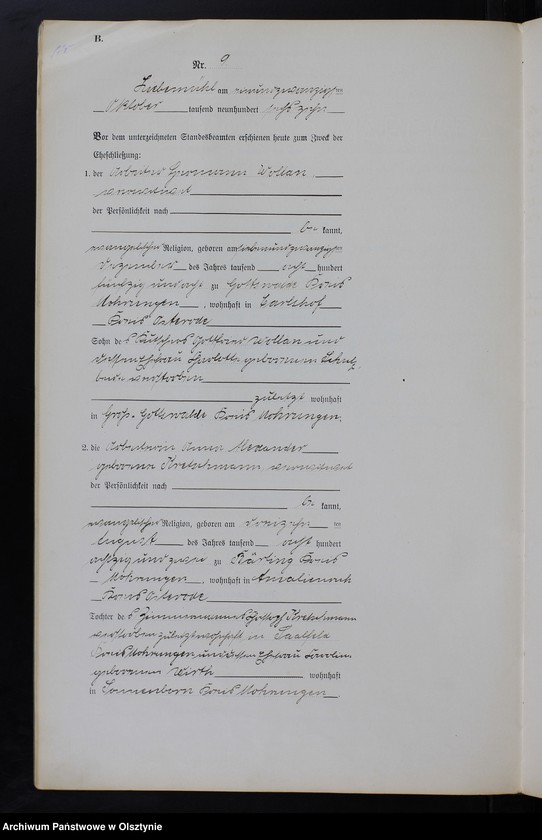 B.
Nr. 9
Liebemühl am neunundzwanzigsten
Oktober tausend neunhundert sechszehn
Vor dem unterzeichneten Standesbeamten erschienen heute zum Zweck der
Eheschließung:
1. der Arbeiter Hermann Wollan
verwitwet
der Persönlichkeit nach
be kannt,
evangelischer Religion, geboren am siebenundzwanzigsten
Dezember des Jahres tausend acht hundert
fünfzig und acht zu Gottswalde Kreis
Mohrungen, wohnhaft in Karlshof
Kreis Osterode
Sohn des Kutschers Gottfried Wollan und
dessen Ehefrau Charlotte geborenen Schulz,
beide verstorben
zuletzt wohnhaft
in Groß-Gottswalde Kreis Mohrungen.
2. die Arbeiterin Anna Alexander
geborene Kretschmann verwitwet
der Persönlichkeit nach
be kannt,
evangelischer Religion, geboren am dreizehnten
August des Jahres tausend acht hundert
achtzig und zwei zu Kärting Kreis
Mohrungen, wohnhaft in Amalienruh
Kreis Osterode
Tochter des Zimmermannes Kretschmann
verstorben zuletzt wohnhaft in Saalfeld
Kreis Mohrungen und dessen Ehefrau Karoline
geborenen Wirth wohnhaft
in Sonnenborn Kreis Mohrungen
Archiwum Państwowe w Olsztynie